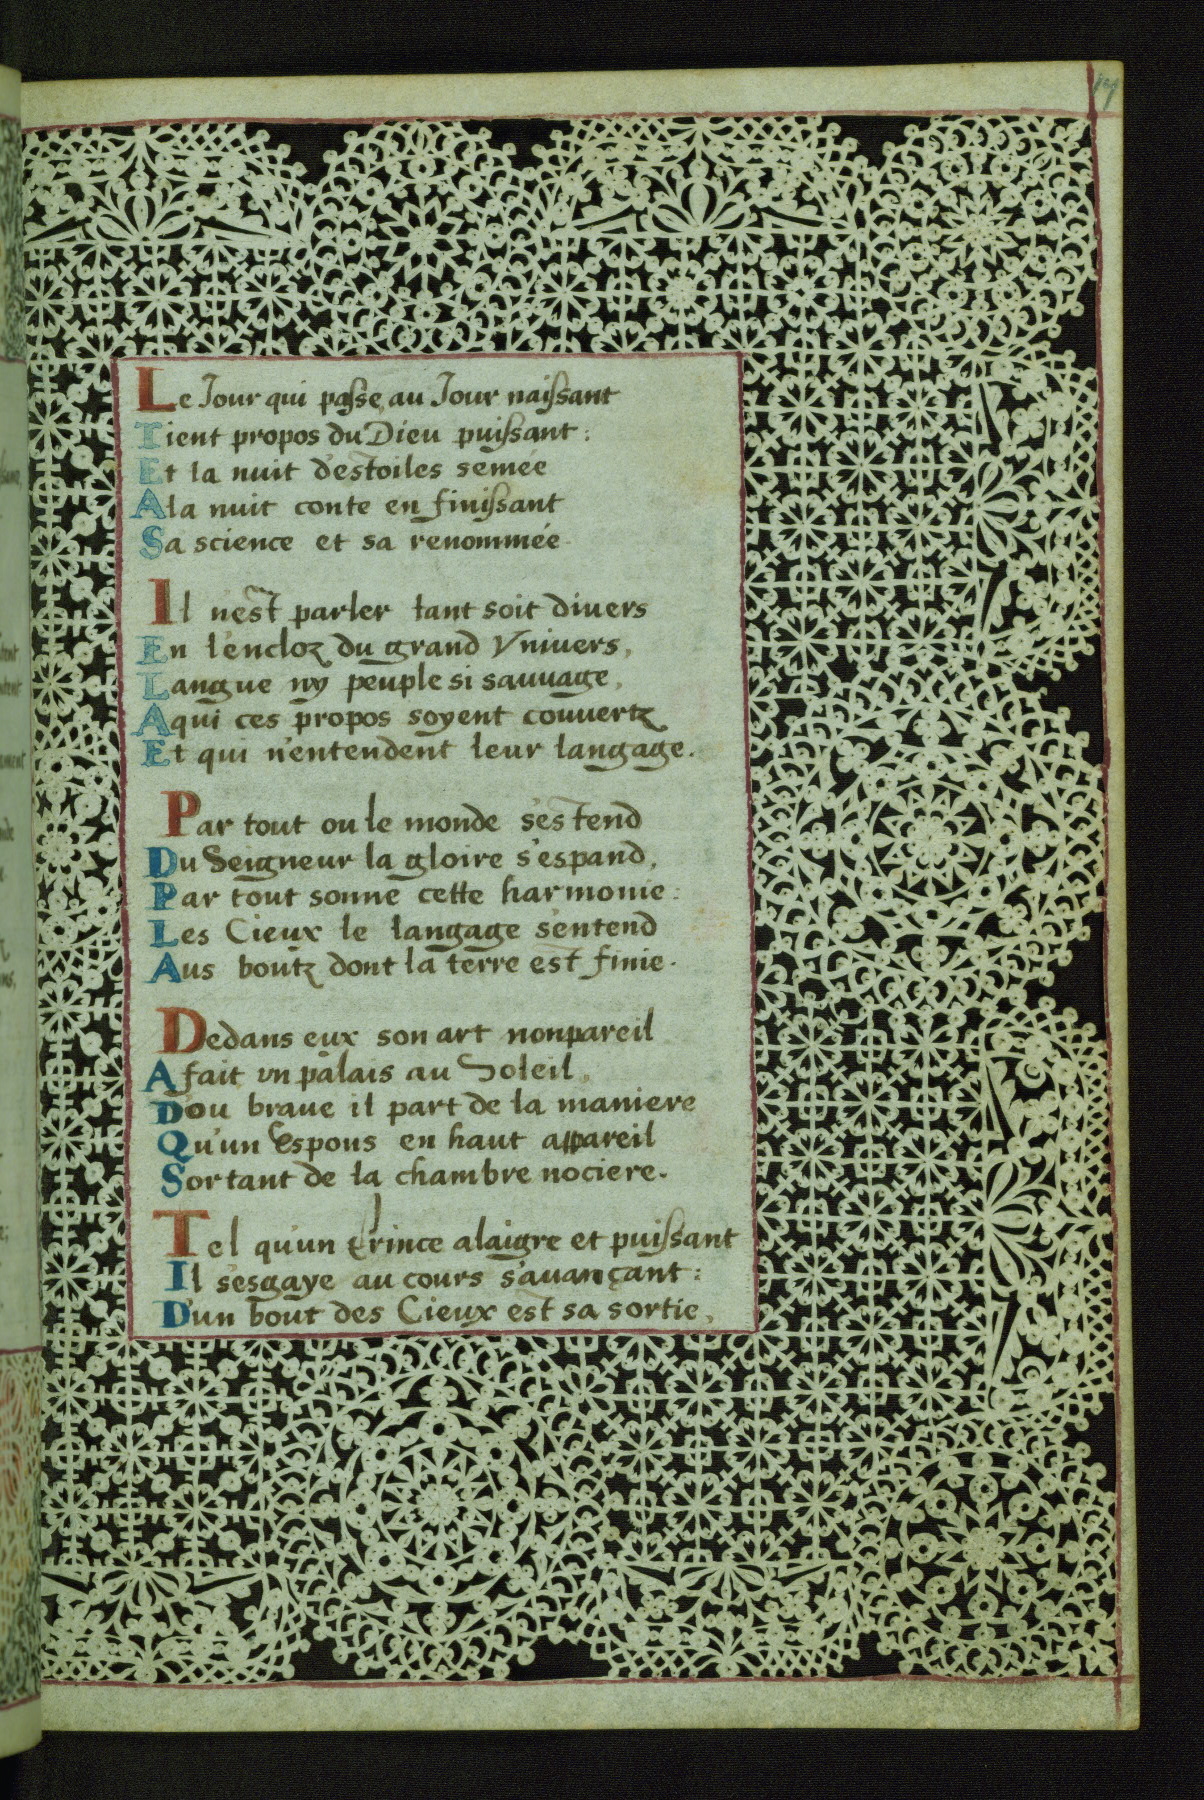 Le Jour qui passe au Jour naissant
Tient propos du Dieu puissant:
Et la nuit d'estoiles semée
A la nuit conte en finissant
Sa science et sa renommée.
Il n'est parler tant soit divers
En l'encloz du grand Vnivers,
Langue ny peuple si sauvage,
A qui ces propos soyent couvertz
Et qui n'entendent leur langage.
Par tout ou le monde s'estend
Du Seigneur la gloire s'espand,
Par tout sonne cette harmonie:
Les Cieux le langage s'entend
Aus boutz dont la terre est finie.
Dedans eux son art nonpareil
A fait vn palais au Soleil,
D'ou braue il part de la maniere
Qu'un Espous en haut appareil
Sortant de la chambre nociere.
Tel qu'un Prince alaigre et puissant
Il s'esgaye au cours s'auançant:
D'un bout des Cieux est sa sortie,